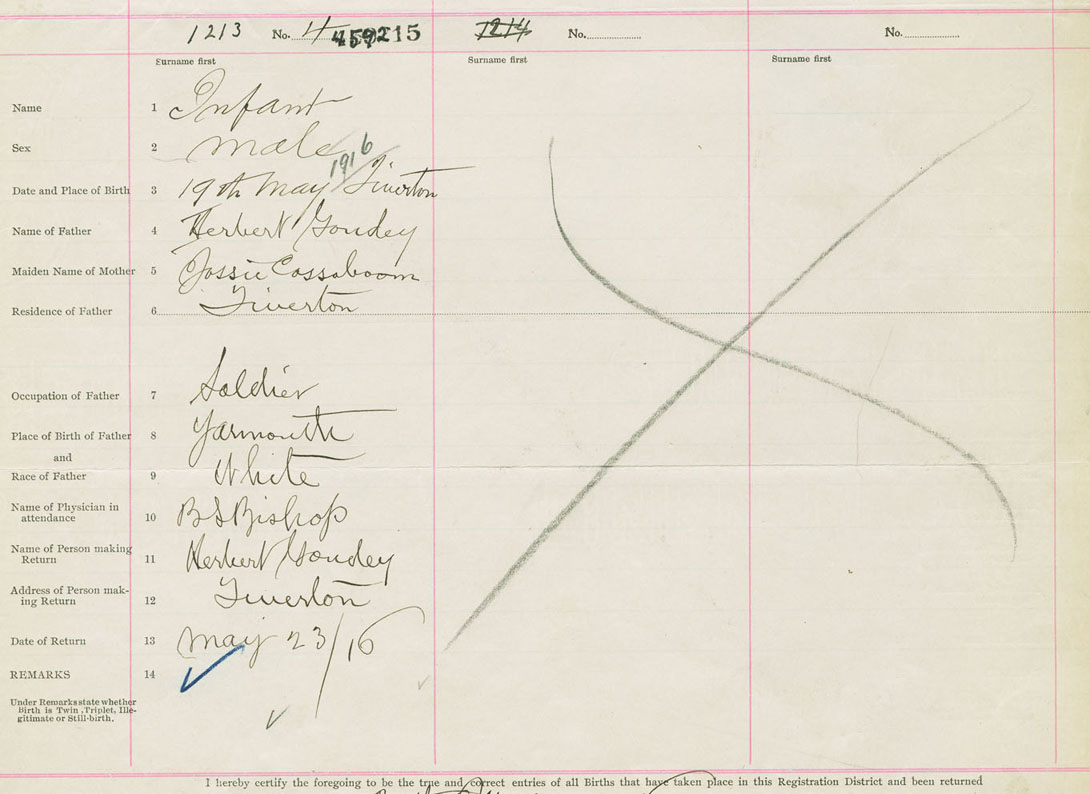 1213 No. 4 459215 1214 No. No.
Surname first Surname first Surname first
Name 1 Infant
Sex 2 male
1916
Date and Place of Birth 3 19th May Tiverton
Name of Father 4 Herbert Goudey
Maiden Name of Mother 5 Jossie Cossaboom
Residence of Father 6 Tiverton
Occupation of Father 7 Soldier
Place of Birth of Father 8 Yarmouth
and
Race of Father 9 White
Name of Physician in
attendance 10 B S Bishop
Name of Person making
Return 11 Herbert Goudey
Address of Person mak-
ing Return 12 Tiverton
Date of Return 13 May 23/16
REMARKS 14
Under Remarks state whether
Birth is Twin, Triplet, Ille-
gitimate or Still-birth.
I hereby certify the foregoing to be the true and correct entries of all Births that have taken place in this Registration District and been returned